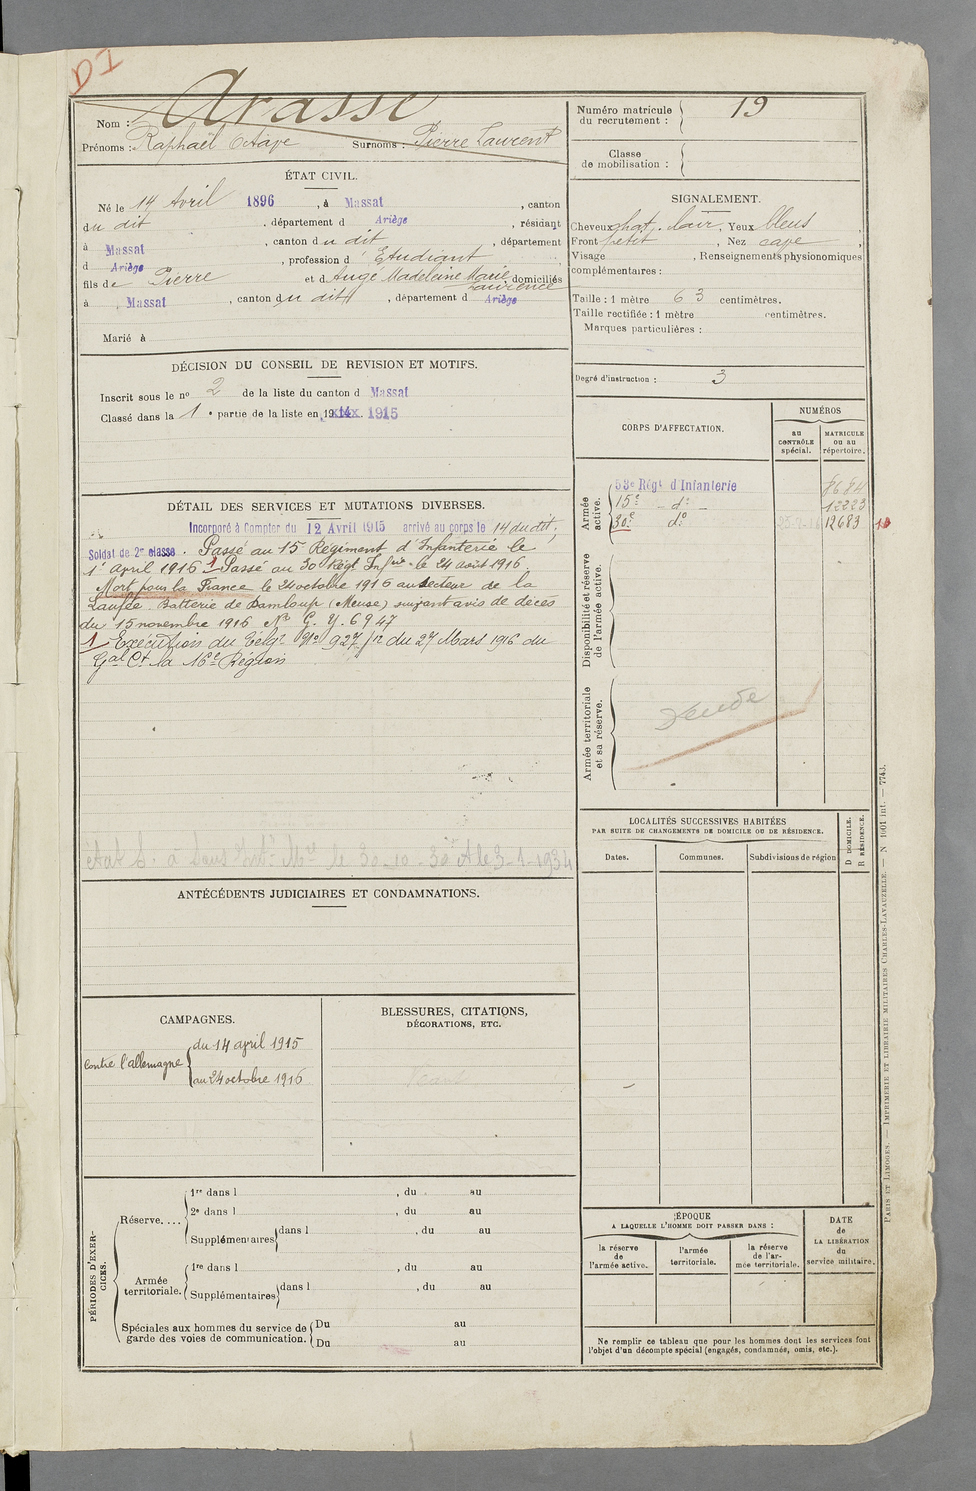 Nom : Arasse
Prénoms : Raphaël Octave Surnoms : Pierre Laurent
ÉTAT CIVIL.
Né le 14 Avril 1896, à Massat, canton
du dit, département d Ariège, résidant
à Massat, canton du dit, département
d Ariège, profession d Etudiant
fils de Pierre et d Augé Madeleine Marie Laurence, domiciliés
à Massat, canton du dit, département d Ariège
Marié à
DÉCISION DU CONSEIL DE REVISION ET MOTIFS.
Inscrit sous le nº 2 de la liste du canton d Massat
Classé dans la 1e partie de la liste en 1914 1915
DÉTAIL DES SERVICES ET MUTATIONS DIVERSES.
Incorporé à Compter du 12 Avril 1915 arrivé au corps le 14 du dit,
Soldat de 2me classe. Passé au 15 Régiment d'Infanterie le
1er Avril 1916 1 Passé au 30 Régt Infrie le 24 août 1916.
Mort pour la France le 24 octobre 1916 au secteur de la
Laufée. Batterie de Damloup (Meuse) suivant avis de décès
du 15 novembre 1916 No G. Y. 6947
1 Exécution du Télgr No 927/12 du 27 Mars 1916 du
Gal Ct la 16e Région
le 30-10-30 A le 3-1-1934
ANTÉCÉDENTS JUDICIAIRES ET CONDAMNATIONS.
CAMPAGNES.
Contre l'allemagne
du 14 april 1915
au 24 octobre 1916
BLESSURES, CITATIONS,
DÉCORATIONS, ETC.
PÉRIODES D'EXERCICES.
Réserve....
1re dans l , du au
2e dans l , du au
Supplémentaires dans l , du au
Armée
territoriale.
1re dans l , du au
Supplémentaires dans l , du au
Spéciales aux hommes du service de
garde des voies de communication.
Du au
Du au
Numéro matricule
du recrutement : 19
Classe
de mobilisation :
SIGNALEMENT.
Cheveux chat. clair, Yeux bleus
Front petit, Nez cave,
Visage , Renseignements physionomiques
complémentaires :
Taille : 1 mètre 63 centimètres.
Taille rectifiée : 1 mètre centimètres.
Marques particulières :
Degré d'instruction : 3
CORPS D'AFFECTATION.
NUMÉROS
au
CONTRÔLE
spécial.
MATRICULE
OU AU
répertoire.
Armée
active.
53e Régt d'Infanterie 8684
15e - do - 12223
30e do 12683
Disponibilité et réserve
de l'armée active.
Armée territoriale
et sa réserve.
LOCALITÉS SUCCESSIVES HABITÉES
PAR SUITE DE CHANGEMENTS DE DOMICILE OU DE RÉSIDENCE.
D DOMICILE.
R RÉSIDENCE.
Dates. Communes. Subdivisions de région
ÉPOQUE
A LAQUELLE L'HOMME DOIT PASSER DANS :
la réserve
de
l'armée active.
l'armée
territoriale.
la réserve
de l'ar-
mée territoriale.
DATE
de
LA LIBÉRATION
du
service militaire.
Ne remplir ce tableau que pour les hommes dont les services font
l'objet d'un décompte spécial (engagés, condamnés, omis, etc.).
PARIS ET LIMOGES. — IMPRIMERIE ET LIBRAIRIE MILITAIRES CHARLES-LAVAUZELLE. — N 1601 int. — 7743.